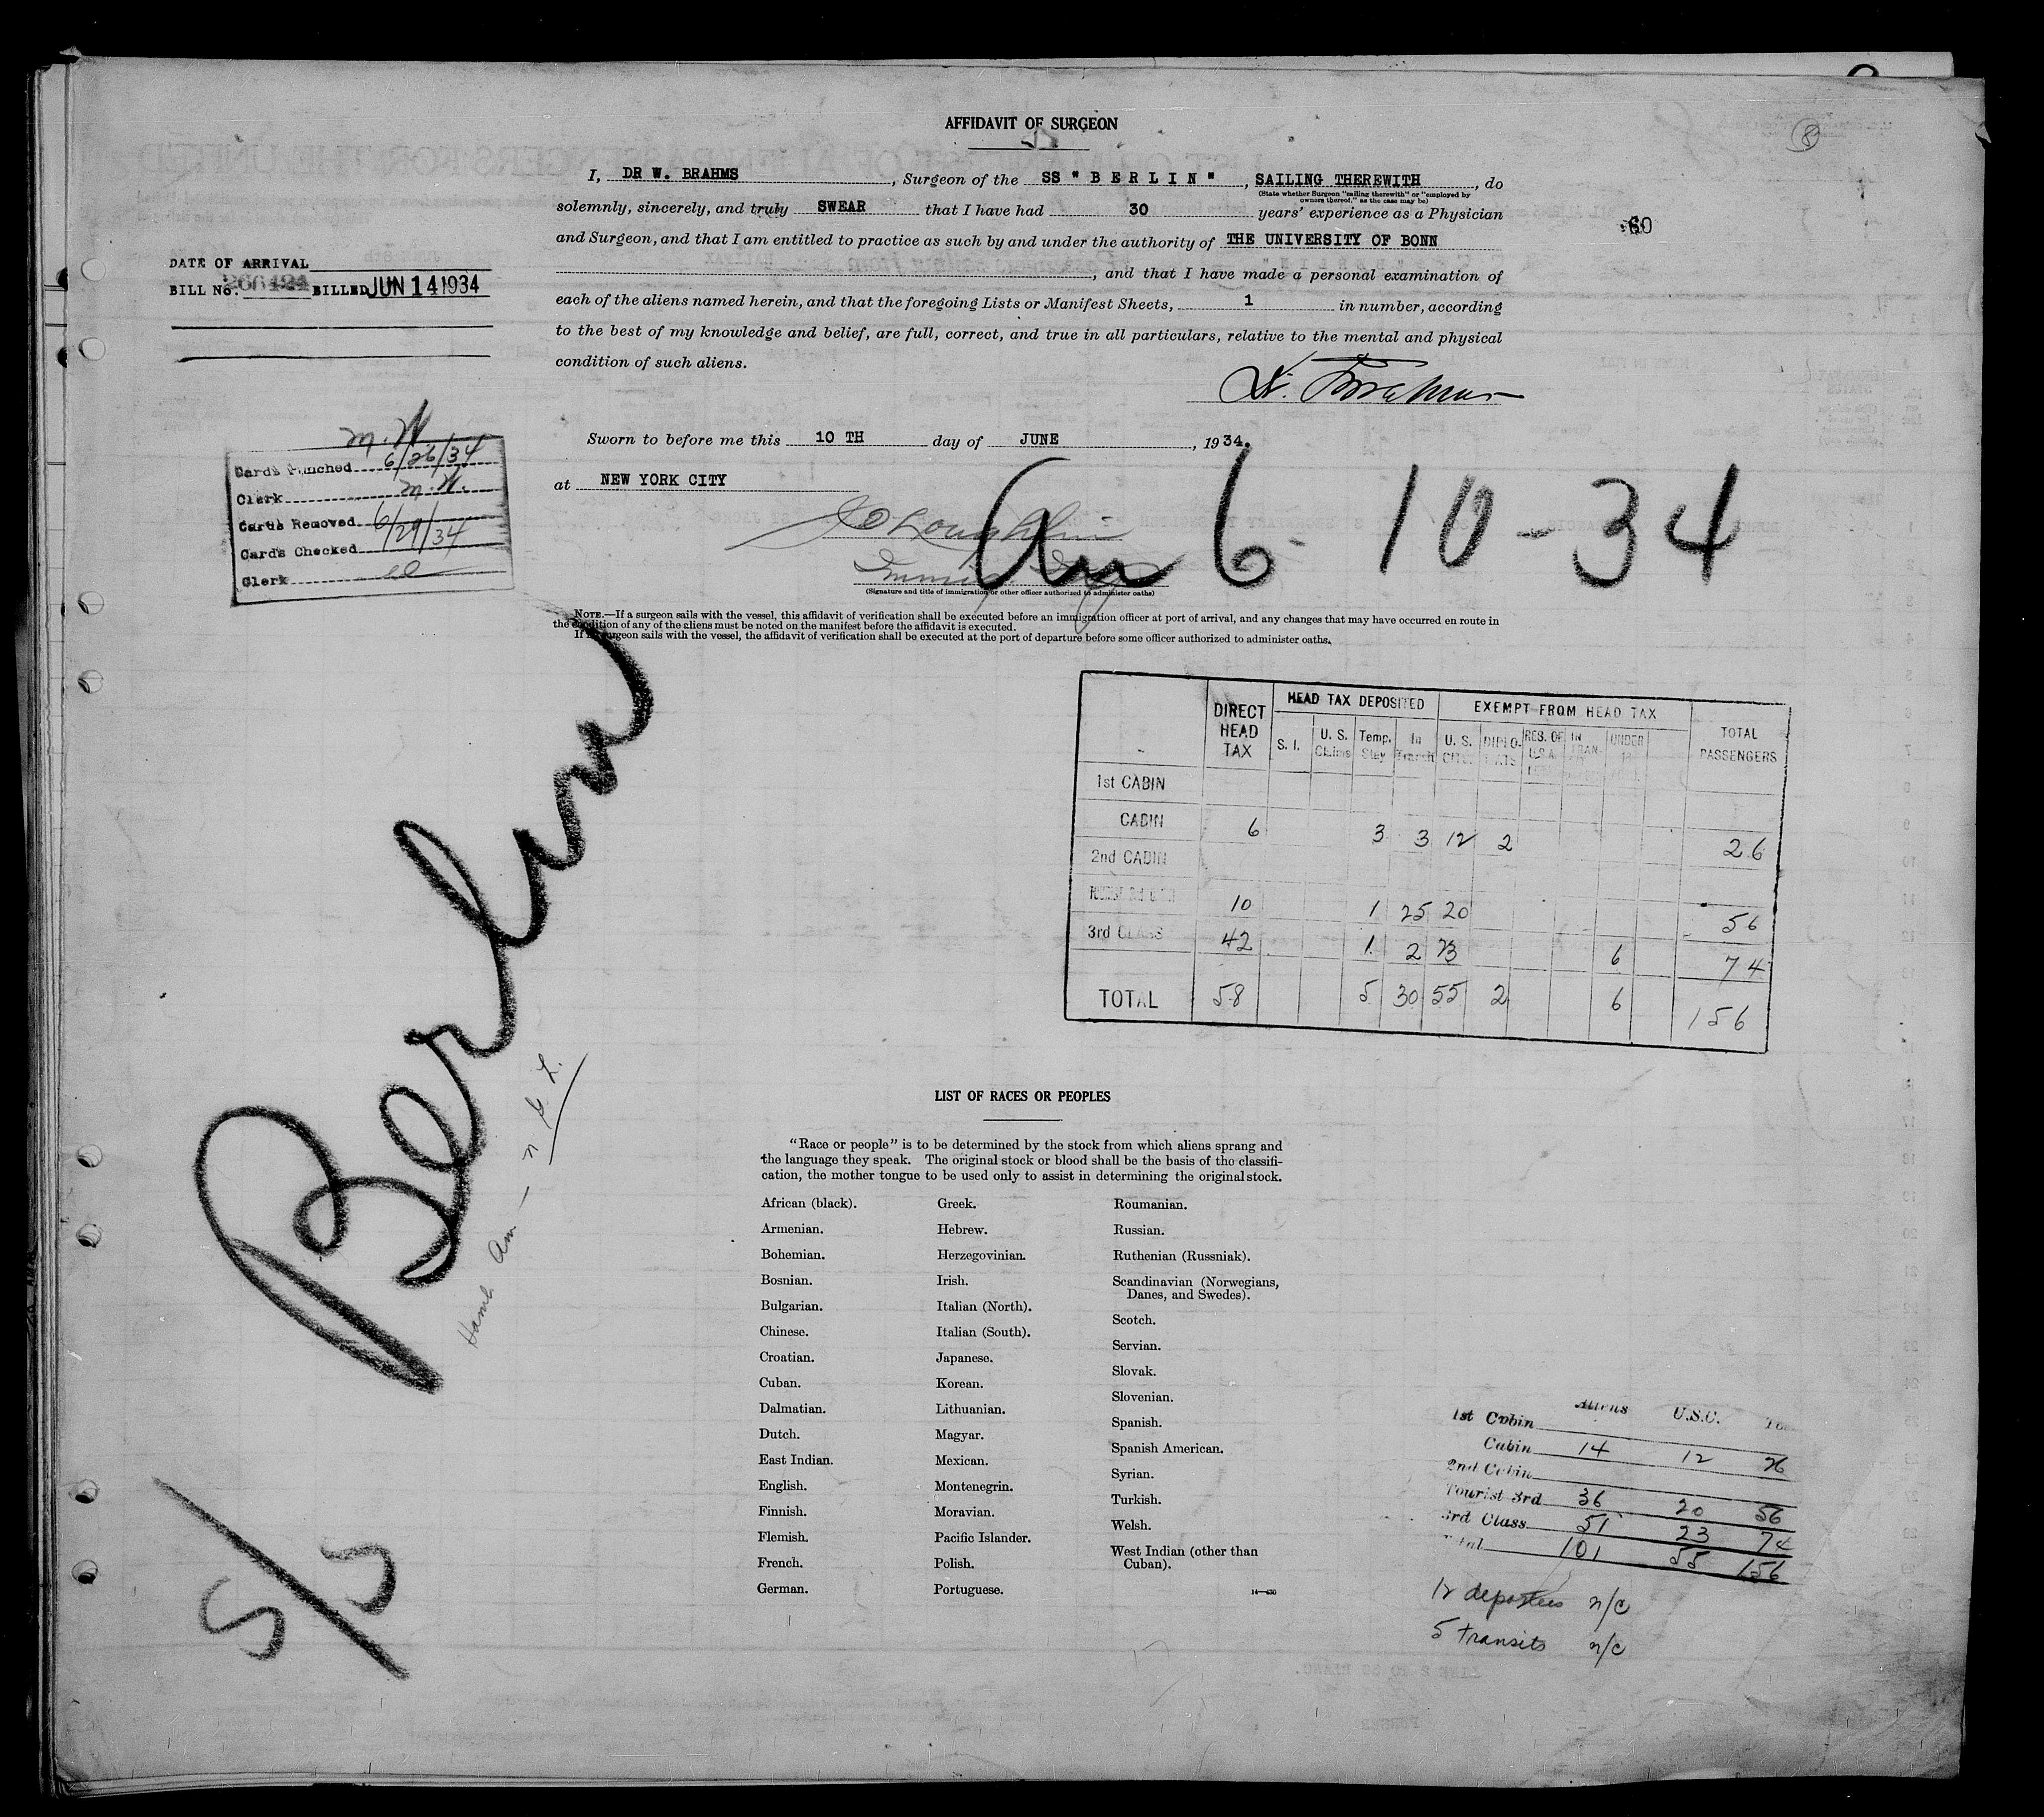 AFFIDAVIT OF SURGEON
8
I, DR W. BRAHMS, Surgeon of the SS "BERLIN", SAILING THEREWITH, do
(State whether Surgeon "sailing therewith" or "employed by owners thereof," as the case may be)
solemnly, sincerely, and truly SWEAR that I have had 30 years' experience as a Physician
60
and Surgeon, and that I am entitled to practice as such by and under the authority of THE UNIVERSITY OF BONN
, and that I have made a personal examination of
each of the aliens named herein, and that the foregoing Lists or Manifest Sheets, 1 in number, according
to the best of my knowledge and belief, are full, correct, and true in all particulars, relative to the mental and physical
condition of such aliens.
DATE OF ARRIVAL
BILL No. BILLED JUN 14 1934
W. Brahms
Sworn to before me this 10 TH day of JUNE, 1934.
at NEW YORK CITY
M. W.
Cards Punched 6/26/34
Clerk M. W.
Cards Removed
Cards Checked 6/29/34
Clerk
6-10-34
(Signature and title of immigration or other officer authorized to administer oaths)
NOTE.—If a surgeon sails with the vessel, this affidavit of verification shall be executed before an immigration officer at port of arrival, and any changes that may have occurred en route in
the condition of any of the aliens must be noted on the manifest before the affidavit is executed.
If no surgeon sails with the vessel, the affidavit of verification shall be executed at the port of departure before some officer authorized to administer oaths.
S/S Berlin
Hamb. Am — N G L.
DIRECT HEAD TAX HEAD TAX DEPOSITED EXEMPT FROM HEAD TAX TOTAL PASSENGERS
S. I. U. S. Claims Temp. Stay In Transit U. S. Citz. DIPLOMATS RES. OF U.S.A. IN TRAN- UNDER
1st CABIN
CABIN 6 3 3 12 2 26
2nd CABIN
10 1 25 20 56
3rd CLASS 42 1 2 23 6 74
TOTAL 58 5 30 55 2 6 156
LIST OF RACES OR PEOPLES
"Race or people" is to be determined by the stock from which aliens sprang and
the language they speak. The original stock or blood shall be the basis of the classifi-
cation, the mother tongue to be used only to assist in determining the original stock.
African (black).
Armenian.
Bohemian.
Bosnian.
Bulgarian.
Chinese.
Croatian.
Cuban.
Dalmatian.
Dutch.
East Indian.
English.
Finnish.
Flemish.
French.
German.
Greek.
Hebrew.
Herzegovinian.
Irish.
Italian (North).
Italian (South).
Japanese.
Korean.
Lithuanian.
Magyar.
Mexican.
Montenegrin.
Moravian.
Pacific Islander.
Polish.
Portuguese.
Roumanian.
Russian.
Ruthenian (Russniak).
Scandinavian (Norwegians,
Danes, and Swedes).
Scotch.
Servian.
Slovak.
Slovenian.
Spanish.
Spanish American.
Syrian.
Turkish.
Welsh.
West Indian (other than
Cuban).
14—430
Aliens U.S.C.
1st Cabin
Cabin 14 12 26
2nd Cabin
Tourist 3rd 36 20 56
3rd Class 51 23 74
Total 101 55 156
12 deportees n/c
5 transits n/c